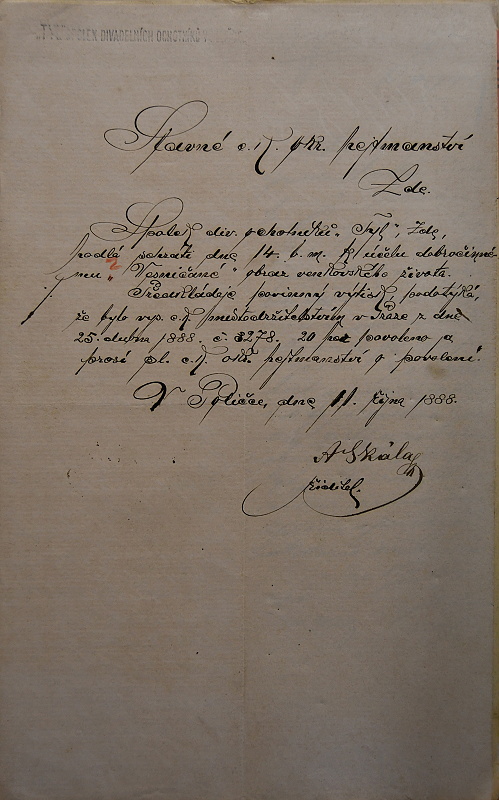 "TYL" SPOLEK DIVADELNÍCH OCHOTNÍKŮ
Slavné c. k. okr. hejtmanství
Zde.
Spolek div. ochotníků "Tyl", Zde,
hodlá sehráti dne 14. t. m. k účelu dobročinné-
mu "Vesničané" obraz venkovského života.
Předkládaje povinný výtisk podotýká,
že bylo vys. c. k. místodržitelstvím v Praze z dne
25. dubna 1888. č. 3278. povoleno a
prosí sl. c. k. okr. hejtmanství o povolení.
V Poličce, dne 11. října 1888.
A Skála
ředitel.